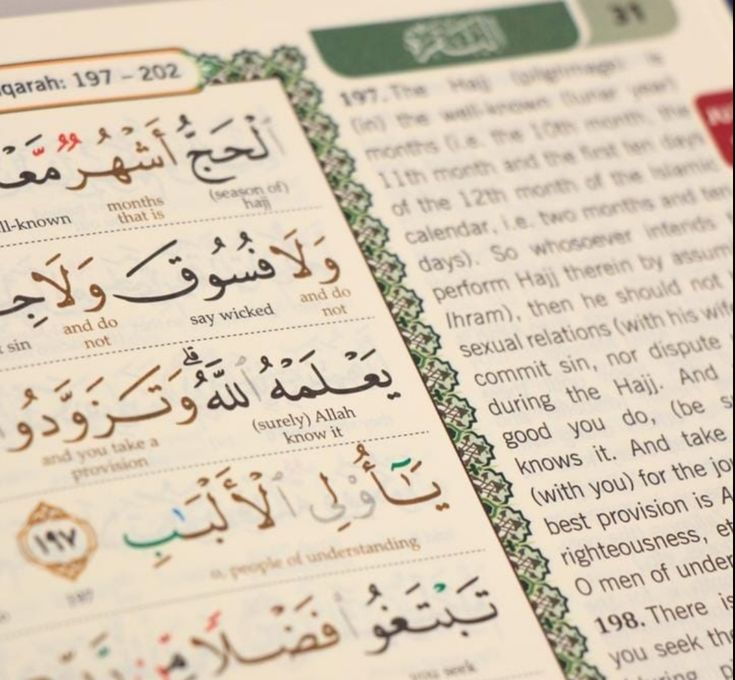 qarah: 197 – 202
31
الْحَجُّ أَشْهُرٌ
(season of) hajj
months that is
ll-known
وَلَا فُسُوقَ وَلَا
and do not
say wicked
and do not
sin
يَعْلَمْهُ اللَّهُ ۗ وَتَزَوَّدُوا
(surely) Allah know it
and you take a provision
يَا أُولِي الْأَلْبَابِ ١٩٧
o, people of understanding
197
تَبْتَغُوا فَضْلًا مِّن
you seek
197. The Hajj (pilgrimage) is
(in) the well-known (lunar year)
months (i.e. the 10th month, the
11th month and the first ten days
of the 12th month of the Islamic
calendar, i.e. two months and ten
days). So whosoever intends
perform Hajj therein by assum
Ihram), then he should not
sexual relations (with his wife
commit sin, nor dispute
during the Hajj. And
good you do, (be
knows it. And take
(with you) for the jo
best provision is A
righteousness, et
O men of under
198. There is
you seek the